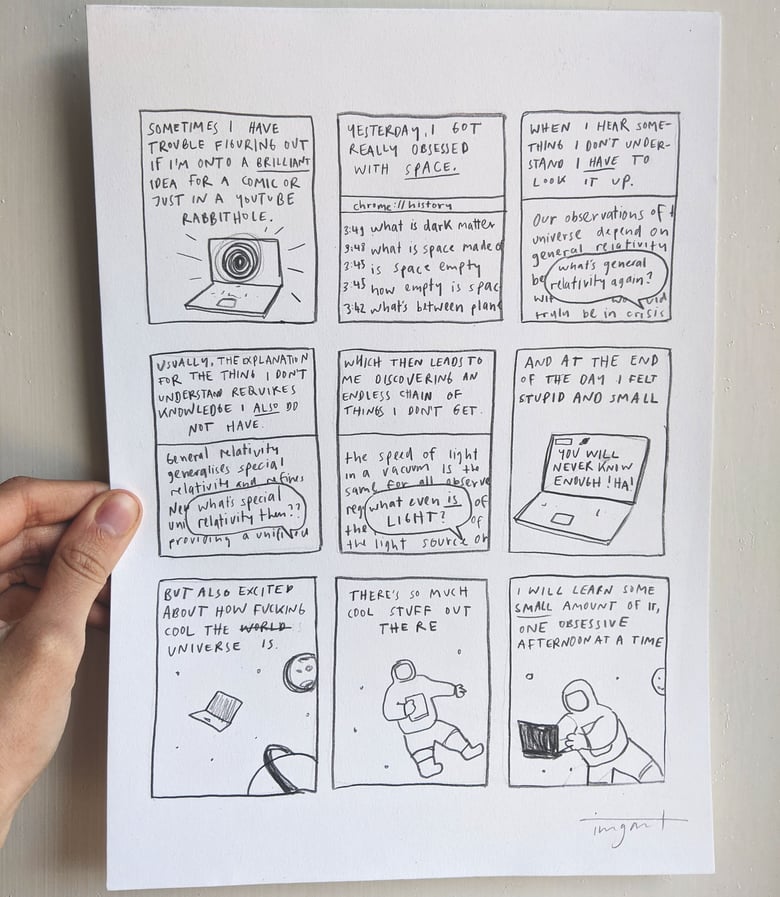 SOMETIMES I HAVE
TROUBLE FIGURING OUT
IF I'M ONTO A BRILLIANT
IDEA FOR A COMIC OR
JUST IN A YOUTUBE
RABBITHOLE.
YESTERDAY, I GOT
REALLY OBSESSED
WITH SPACE.
chrome://history
3:49 what is dark matter
3:48 what is space made o
3:45 is space empty
3:45 how empty is spac
3:42 what's between plan
WHEN I HEAR SOME-
THING I DON'T UNDER-
STAND I HAVE TO
LOOK IT UP.
Our observations of t
universe depend on
general relativity
be
what's general
relativity again?
truly be in crisis
USUALLY, THE EXPLANATION
FOR THE THING I DON'T
UNDERSTAND REQUIRES
KNOWLEDGE I ALSO DO
NOT HAVE.
General relativity
generalises special
relativity and refines
New
what's special
uni
relativity then??
providing a unified
WHICH THEN LEADS TO
ME DISCOVERING AN
ENDLESS CHAIN OF
THINGS I DON'T GET.
the speed of light
in a vacuum is the
same for all observe
reg
what even is
of
LIGHT?
the
of
the light source or
AND AT THE END
OF THE DAY I FELT
STUPID AND SMALL
YOU WILL
NEVER KNOW
ENOUGH! HA!
BUT ALSO EXCITED
ABOUT HOW FUCKING
COOL THE WORLD
UNIVERSE IS.
THERE'S SO MUCH
COOL STUFF OUT
THERE
I WILL LEARN SOME
SMALL AMOUNT OF IT,
ONE OBSESSIVE
AFTERNOON AT A TIME